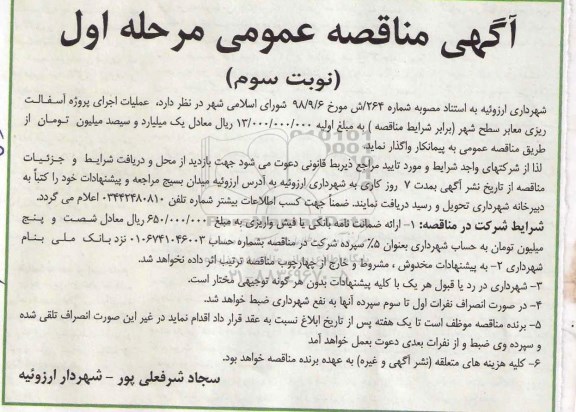 آگهی مناقصه عمومی مرحله اول
(نوبت سوم)
شهرداری ارزوئیه به استناد مصوبه شماره ۲۶۴/ش مورخ ۹۸/۹/۶ شورای اسلامی شهر در نظر دارد، عملیات اجرای پروژه آسفالت
ریزی معابر سطح شهر (برابر شرایط مناقصه) به مبلغ اولیه ۱۳/۰۰۰/۰۰۰/۰۰۰ ریال معادل یک میلیارد و سیصد میلیون تومان از
طریق مناقصه عمومی به پیمانکار واگذار نماید.
لذا از شرکتهای واجد شرایط و مورد تایید مراجع ذیربط قانونی دعوت می شود جهت بازدید از محل و دریافت شرایط و جزئیات
مناقصه از تاریخ نشر آگهی بمدت ۷ روز کاری به شهرداری ارزوئیه به آدرس ارزوئیه میدان بسیج مراجعه و پیشنهادات خود را کتباً به
دبیرخانه شهرداری تحویل و رسید دریافت نمایند. ضمناً جهت کسب اطلاعات بیشتر شماره تلفن ۰۳۴۴۲۴۸۰۸۱۰ اعلام می گردد.
شرایط شرکت در مناقصه: ۱- ارائه ضمانت نامه بانکی یا فیش واریزی به مبلغ ۶۵۰/۰۰۰/۰۰۰ ریال معادل شصت و پنج
میلیون تومان به حساب شهرداری بعنوان ۵٪ سپرده شرکت در مناقصه بشماره حساب ۰۱۰۶۷۴۱۰۴۶۰۰۳ نزد بانک ملی بنام
شهرداری ۲- به پیشنهادات مخدوش ، مشروط و خارج از چهارچوب مناقصه ترتیب اثر داده نخواهد شد.
۳- شهرداری در رد یا قبول هر یک یا کلیه پیشنهادات بدون هر گونه توجیهی مختار است.
۴- در صورت انصراف نفرات اول تا سوم سپرده آنها به نفع شهرداری ضبط خواهد شد.
۵- برنده مناقصه موظف است تا یک هفته پس از تاریخ ابلاغ نسبت به عقد قرار داد اقدام نماید در غیر این صورت انصراف تلقی شده
و سپرده وی ضبط و از نفرات بعدی دعوت بعمل خواهد آمد
۶- کلیه هزینه های متعلقه (نشر آگهی و غیره) به عهده برنده مناقصه خواهد بود.
سجاد شرفعلی پور - شهردار ارزوئیه